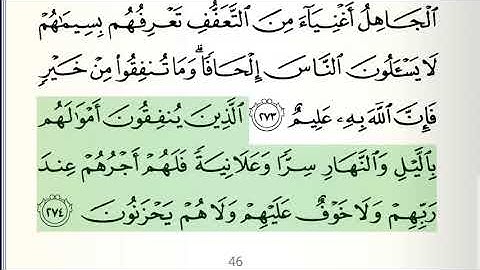 ٱلْجَاهِلُ أَغْنِيَآءَ مِنَ ٱلتَّعَفُّفِ تَعْرِفُهُم بِسِيمَٰهُمْ
لَا يَسْـَٔلُونَ ٱلنَّاسَ إِلْحَافًا ۗ وَمَا تُنفِقُوا۟ مِنْ خَيْرٍ
فَإِنَّ ٱللَّهَ بِهِۦ عَلِيمٌ ٢٧٣ ٱلَّذِينَ يُنفِقُونَ أَمْوَٰلَهُم
بِٱلَّيْلِ وَٱلنَّهَارِ سِرًّا وَعَلَانِيَةً فَلَهُمْ أَجْرُهُمْ عِندَ
رَبِّهِمْ وَلَا خَوْفٌ عَلَيْهِمْ وَلَا هُمْ يَحْزَنُونَ ٢٧٤
46